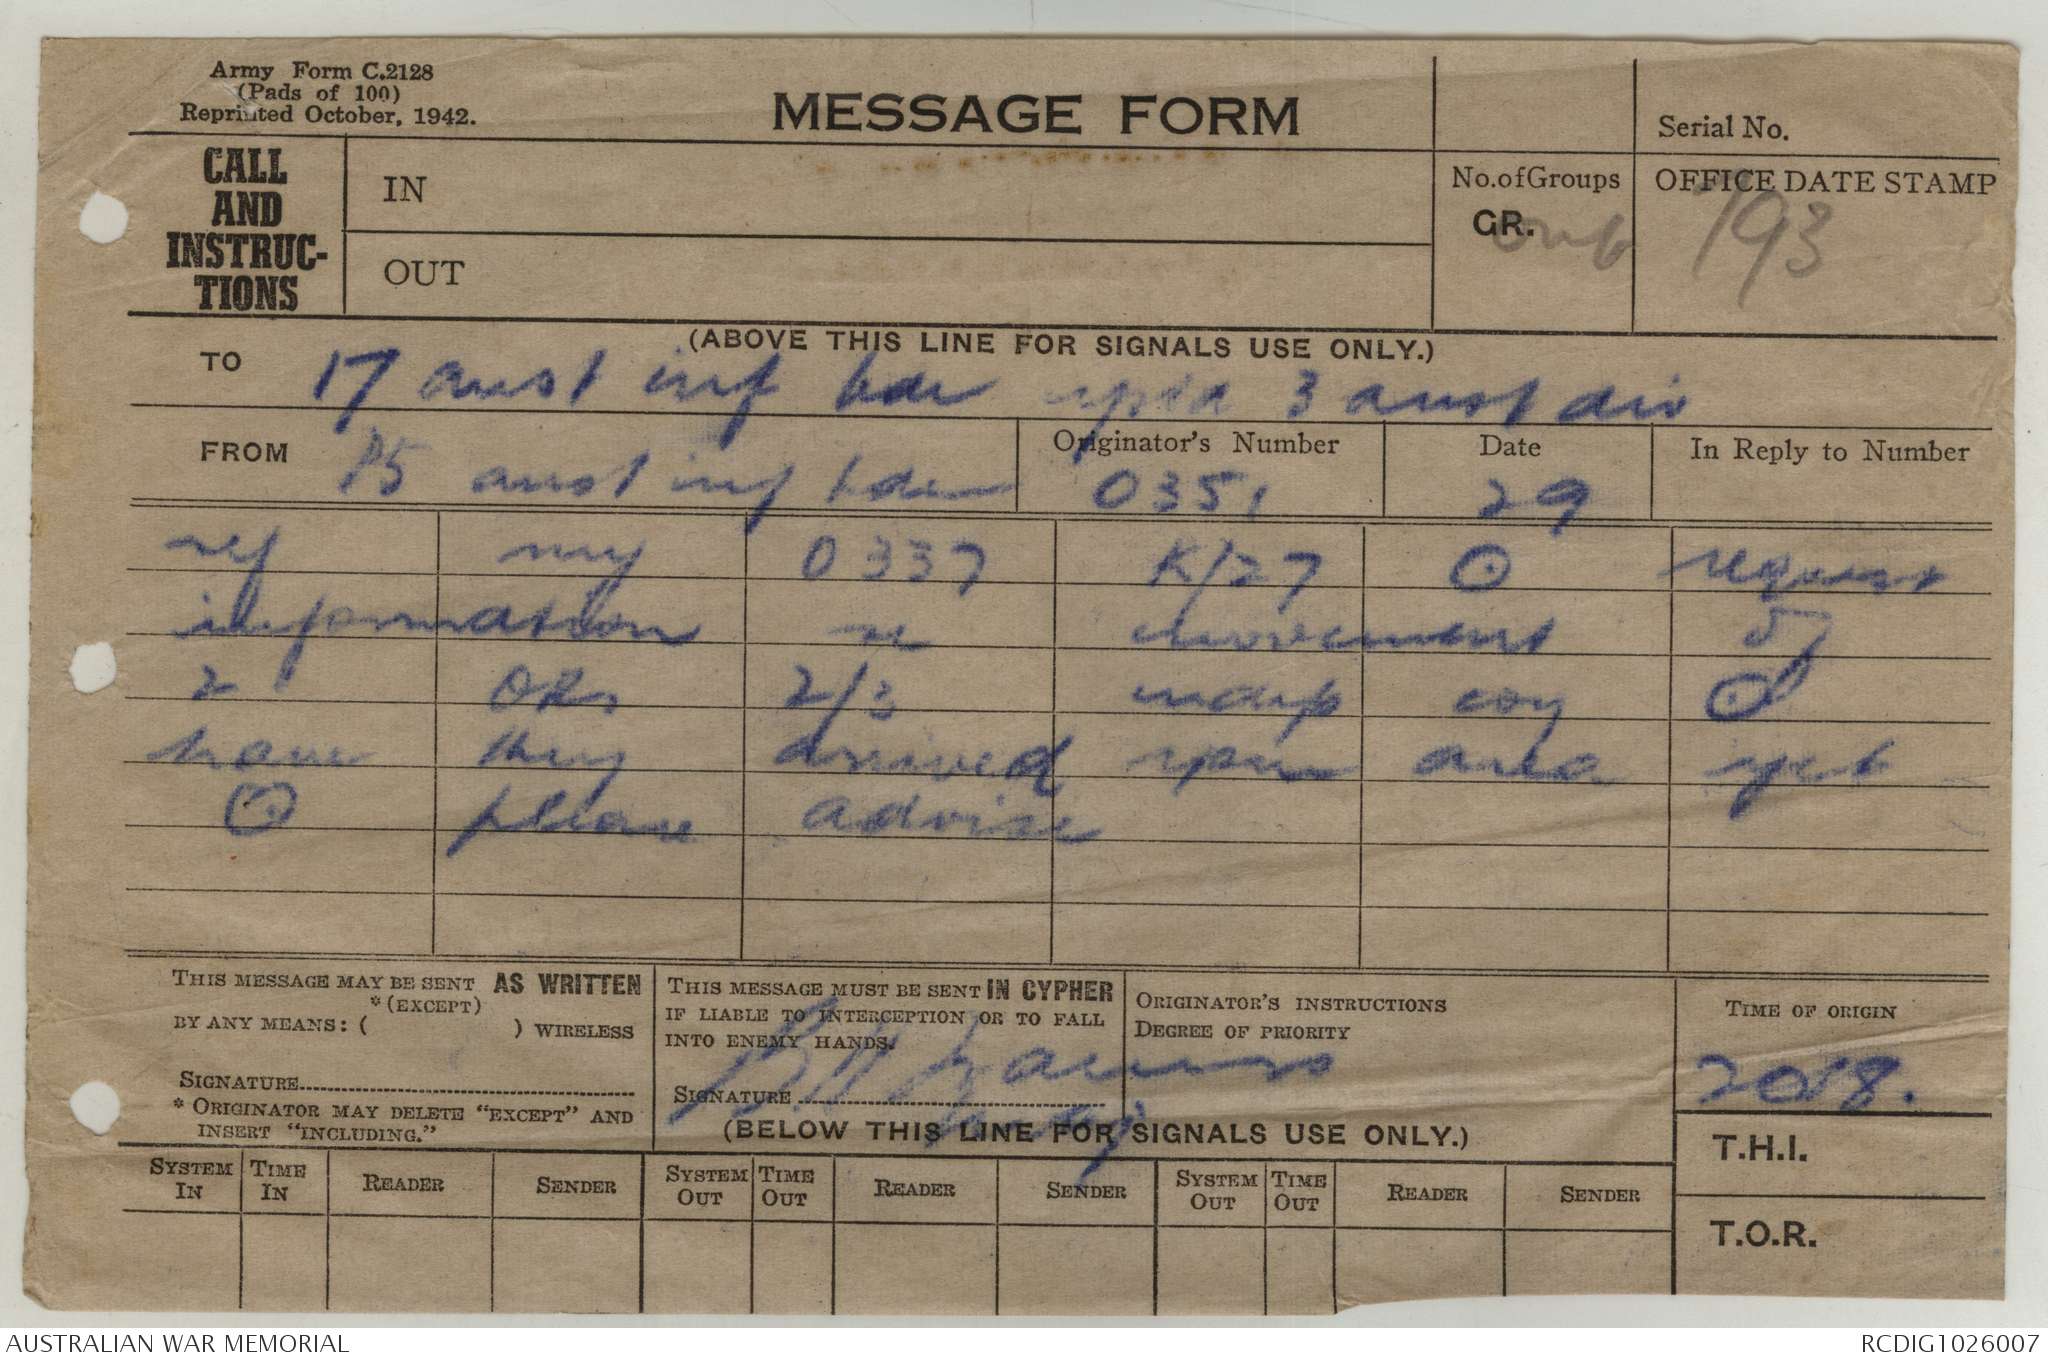 Army Form C.2128
(Pads of 100)
Reprinted October, 1942.
MESSAGE FORM
Serial No.
CALL AND INSTRUC-TIONS
IN
OUT
No. of Groups
GR.
OFFICE DATE STAMP
793
(ABOVE THIS LINE FOR SIGNALS USE ONLY.)
TO 17 aust inf bde rptd 3 aust div
FROM 15 aust inf bde
Originator's Number 0351
Date 29
In Reply to Number
ref my 0337 K/27 ⊙ request
information re movement of
2 ORs 2/3 indep coy ⊙
have they arrived your area yet
⊙ please advise
THIS MESSAGE MAY BE SENT AS WRITTEN
*(EXCEPT)
BY ANY MEANS: ( ) WIRELESS
SIGNATURE
* ORIGINATOR MAY DELETE "EXCEPT" AND
INSERT "INCLUDING."
THIS MESSAGE MUST BE SENT IN CYPHER
IF LIABLE TO INTERCEPTION OR TO FALL
INTO ENEMY HANDS.
SIGNATURE
ORIGINATOR'S INSTRUCTIONS
DEGREE OF PRIORITY
TIME OF ORIGIN
2018.
T.H.I.
T.O.R.
(BELOW THIS LINE FOR SIGNALS USE ONLY.)
SYSTEM IN TIME IN READER SENDER SYSTEM OUT TIME OUT READER SENDER SYSTEM OUT TIME OUT READER SENDER
AUSTRALIAN WAR MEMORIAL
RCDIG1026007